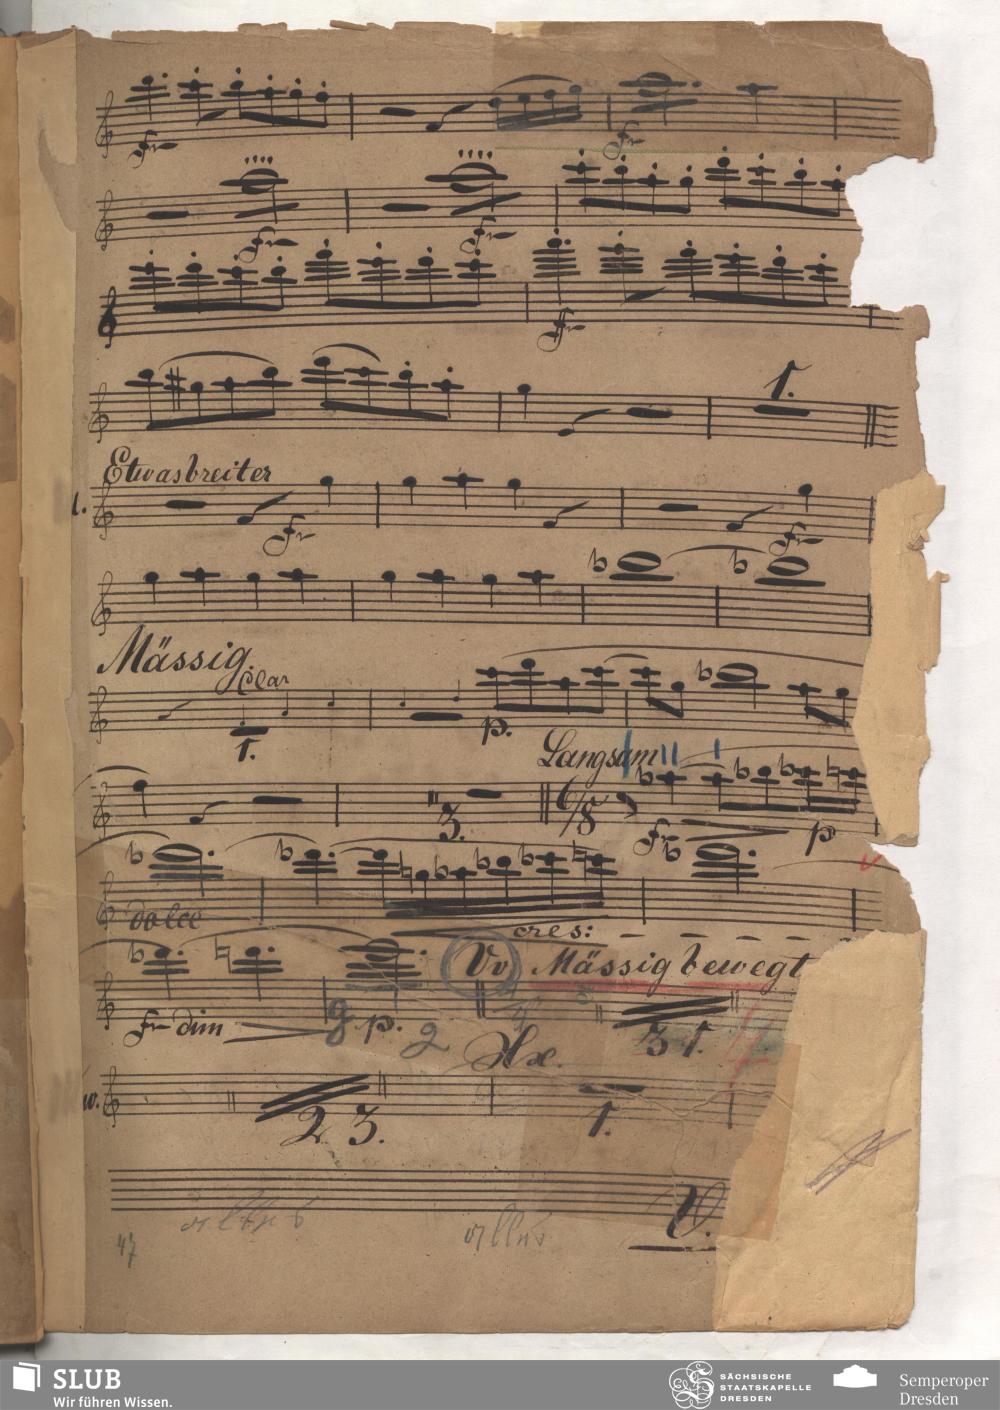 fr fr
fr fr
fr
1.
Etwas breiter
1.
fr fr
Mässig.
Clar
1. p.
Langsam
3. 6/8 fr p
dolce
cres:
Vv Mässig bewegt
fr dim p. 2
Hx. 3 1.
2 3. 1.
V.
47
SLUB
Wir führen Wissen.
SÄCHSISCHE
STAATSKAPELLE
DRESDEN
Semperoper
Dresden